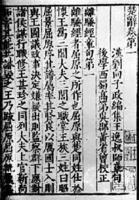 楚辭卷第一
漢劉向子政編集王逸叔師章句
後學西蜀高第吳郡黃省曾校正
離騷經章句第一
離騷經者屈原之所作也屈原與楚同姓仕
於懷王為三閭大夫三閭之職掌王族三姓曰
昭屈景屈原序其譜屬率其賢良以厲國士入
則與王圖議政事決定嫌疑出則監察群下應
對諸侯謀行職修王甚珍之同列大夫上官
譖毀之王乃疏屈原